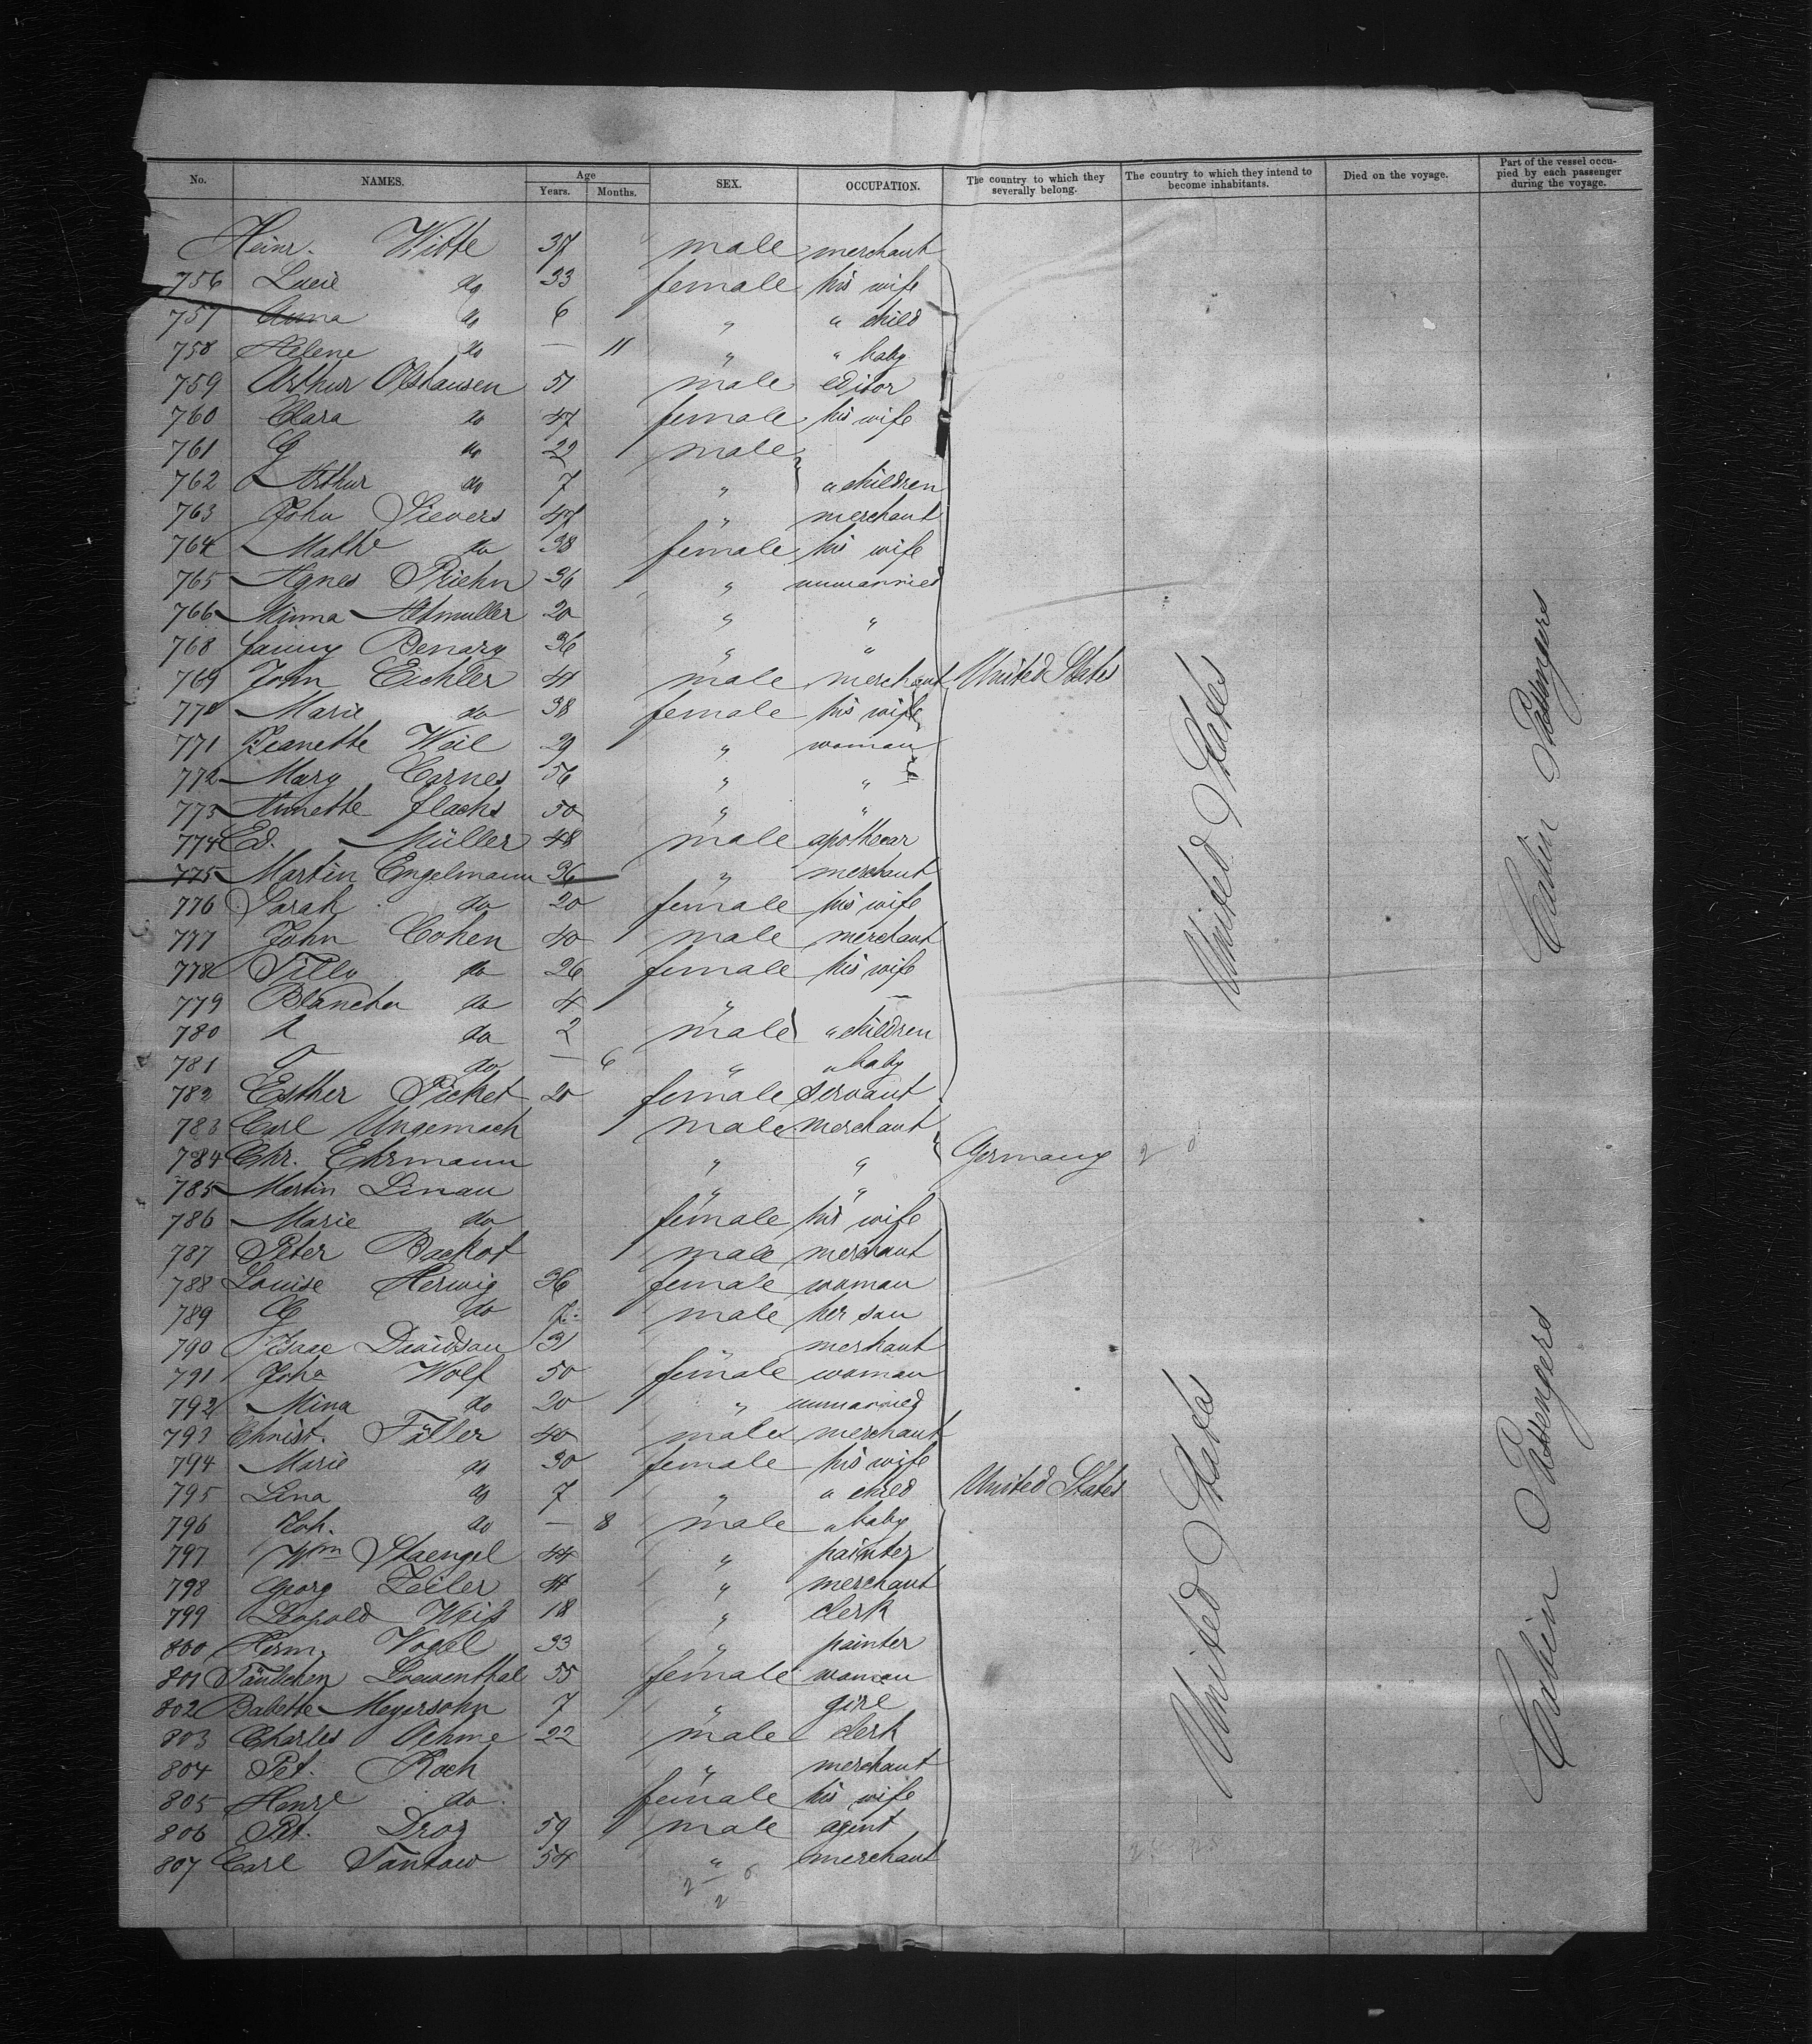 No. NAMES. Age Years. Months. SEX. OCCUPATION. The country to which they severally belong. The country to which they intend to become inhabitants. Died on the voyage. Part of the vessel occupied by each passenger during the voyage.
Heinr. Witte 37 male merchant
756 Lucie do 33 female his wife
757 Anna do 6 " " child
758 Helene do — 11 " " baby
759 Arthur Olshausen 51 male editor
760 Clara do 47 female his wife
761 G do 22 male
762 Arthur do 7 " " children
763 John Sievers 47 " merchant
764 Math do 38 female his wife
765 Agnes Priehn 36 " unmarried
766 Minna Altmuller 20 " "
768 Fanny Benary 36 " "
769 John Eichler 41 male merchant United States
770 Marie do 38 female his wife
771 Jeanette Weil 29 " woman
772 Mary Carnes 56 " "
773 Annette Flachs 50 " "
774 Ed. Müller 48 male apothecar
775 Martin Engelmann 36 " merchant
776 Sarah do 20 female his wife
777 John Cohen 40 male merchant
778 Tilly do 26 female his wife
779 Blancha do 4 "
780 do 2 male " children
781 do — 6 " " baby
782 Esther Picket 20 female servant
783 Carl Ungemach male merchant
784 Chr. Ehrmann " " Germany
785 Martin Linau " "
786 Marie do female his wife
787 Peter Backof male merchant
788 Louise Herwig 36 female woman
789 do 7 male her son
790 Isaac Davidson 31 " merchant
791 Joha Wolf 50 female woman
792 Mina do 20 " unmarried
793 Christ. Fäller 40 male merchant
794 Marie do 30 female his wife
795 Lina do 7 " " child United States
796 Joh. do — 8 male " baby
797 Wm Staengel 44 " painter
798 Georg Zeiler 41 " merchant
799 Leopold Weiß 18 " clerk
800 Herm. Vogel 33 " painter
801 Täubchen Loewenthal 55 female woman
802 Babette Meyersohn 7 " girl
803 Charles Oehme 22 male clerk
804 Pet. Koch " merchant
805 Henr do female his wife
806 Pet. Droz 59 male agent
807 Carl Tantow 54 " merchant
United States
Cabin Passengers
United States
Cabin Passengers